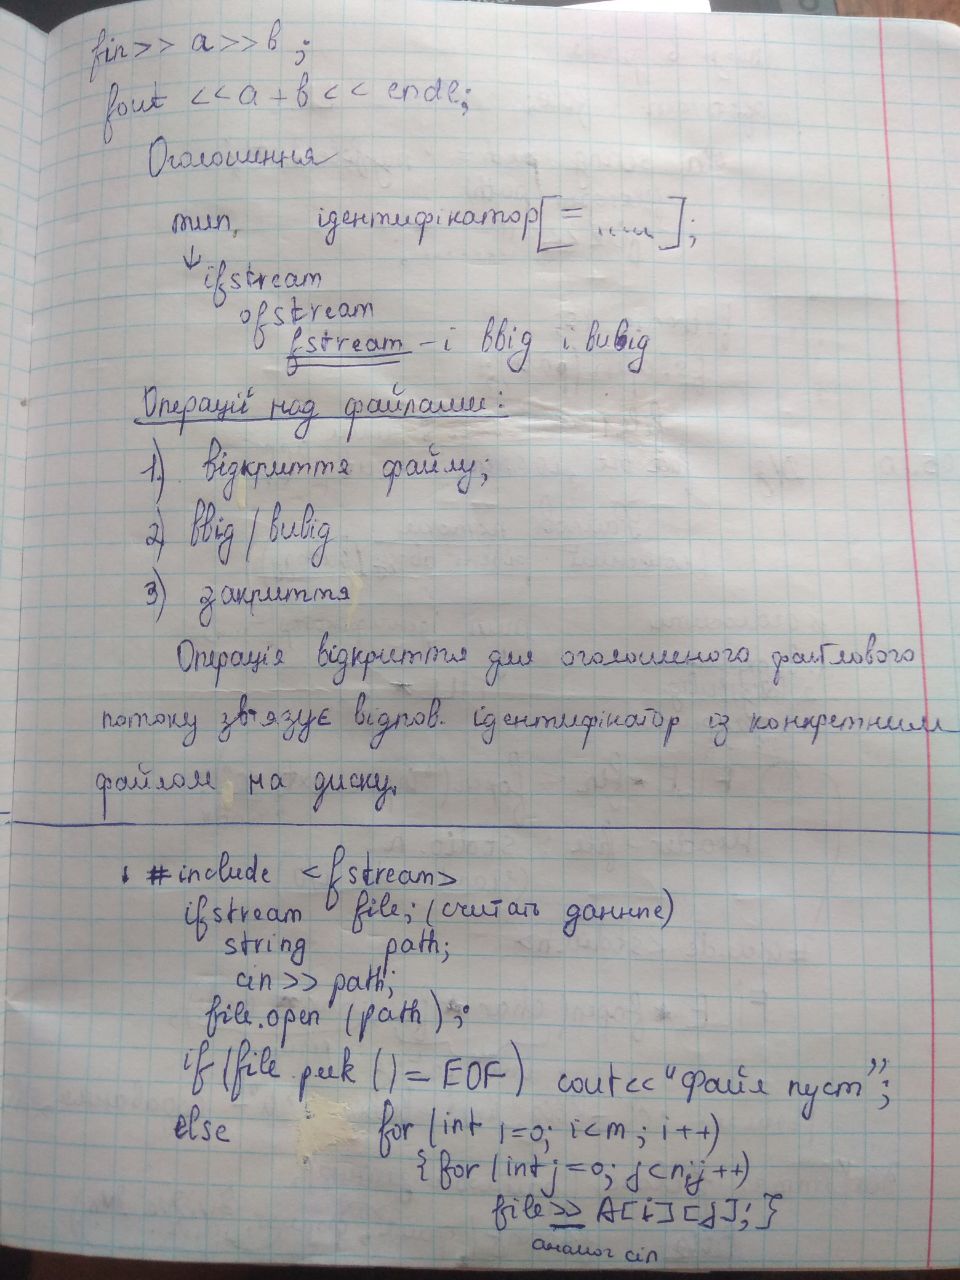 fin>> a>>b ;
fout <<a + b<< endl;
Оголошення
тип, ідентифікатор[= ];
↓ ifstream
ofstream
fstream – і ввід і вивід
Операції над файлами:
1) відкриття файлу;
2) ввід / вивід
3) закриття
Операція відкриття для оголошеного файлового
потоку зв'язує відпов. ідентифікатор із конкретним
файлом на диску.
#include <fstream>
ifstream file; (считать данные)
string path;
cin>> path;
file.open (path);
if (file.peek ()= EOF) cout<<"Файл пуст";
else for (int i=0; i<m; i++)
{for (int j=0; j<n;j++)
file>> A[i][j]; }
аналог cin